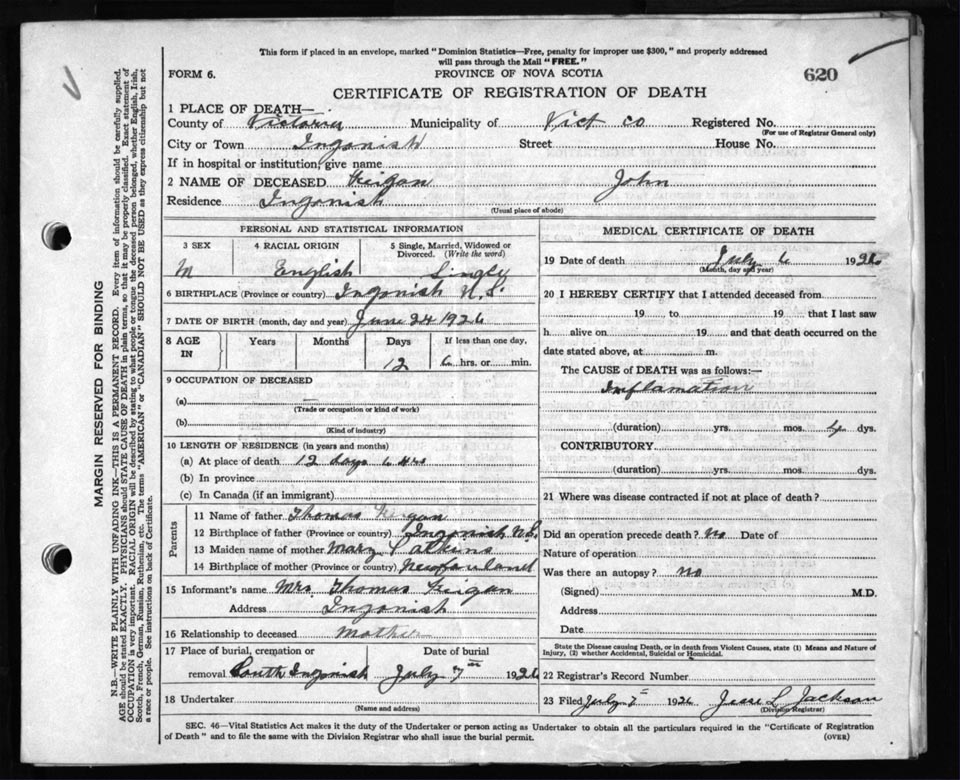 This form if placed in an envelope, marked "Dominion Statistics—Free, penalty for improper use $300," and properly addressed
will pass through the Mail "FREE."
FORM 6.
PROVINCE OF NOVA SCOTIA
620
CERTIFICATE OF REGISTRATION OF DEATH
1 PLACE OF DEATH—
County of Victoria Municipality of Vict co Registered No.
(For use of Registrar General only)
City or Town Ingonish Street House No.
If in hospital or institution, give name
2 NAME OF DECEASED John
Residence Ingonish
(Usual place of abode)
PERSONAL AND STATISTICAL INFORMATION
3 SEX 4 RACIAL ORIGIN 5 Single, Married, Widowed or
Divorced. (Write the word)
M English Single
6 BIRTHPLACE (Province or country) Ingonish N.S.
7 DATE OF BIRTH (month, day and year) June 24 1926
8 AGE IN Years Months Days If less than one day,
12 6 hrs. or min.
9 OCCUPATION OF DECEASED
(a) —
(Trade or occupation or kind of work)
(b)
(Kind of industry)
10 LENGTH OF RESIDENCE (in years and months)
(a) At place of death 12 days 6 Hrs
(b) In province
(c) In Canada (if an immigrant)
Parents
11 Name of father Thomas
12 Birthplace of father (Province or country) Ingonish N.S.
13 Maiden name of mother Mary
14 Birthplace of mother (Province or country) Newfounland
15 Informant's name Mrs. Thomas
Address Ingonish
16 Relationship to deceased Mother
17 Place of burial, cremation or Date of burial
removal South Ingonish July 7th 1926
18 Undertaker
(Name and address)
MEDICAL CERTIFICATE OF DEATH
19 Date of death July 6 1926
(Month, day and year)
20 I HEREBY CERTIFY that I attended deceased from
19 to 19 that I last saw
h alive on 19 and that death occurred on the
date stated above, at m.
The CAUSE of DEATH was as follows:—
Inflamation
(duration) yrs. mos. dys.
CONTRIBUTORY
(duration) yrs. mos. dys.
21 Where was disease contracted if not at place of death?
Did an operation precede death? No Date of
Nature of operation
Was there an autopsy? no
(Signed) M.D.
Address
Date
State the Disease causing Death, or in death from Violent Causes, state (1) Means and Nature of
Injury, (2) whether Accidental, Suicidal or Homicidal.
22 Registrar's Record Number
23 Filed July 7th 1926 Jesse L Jackson
(Division Registrar)
SEC. 46—Vital Statistics Act makes it the duty of the Undertaker or person acting as Undertaker to obtain all the particulars required in the "Certificate of Registration
of Death" and to file the same with the Division Registrar who shall issue the burial permit.
(OVER)
MARGIN RESERVED FOR BINDING
N.B.—WRITE PLAINLY WITH UNFADING INK—THIS IS A PERMANENT RECORD. Every item of information should be carefully supplied.
AGE should be stated EXACTLY. PHYSICIANS should STATE CAUSE OF DEATH in plain terms, so that it may be properly classified. Exact statement of
OCCUPATION is very important. RACIAL ORIGIN will be described by stating to what people or tongue the deceased person belonged, whether English, Irish,
Scotch, French, German, Russian, Ruthenian, etc. The terms "AMERICAN" or "CANADIAN" SHOULD NOT BE USED as they express citizenship but not
a race or people. See instructions on back of Certificate.